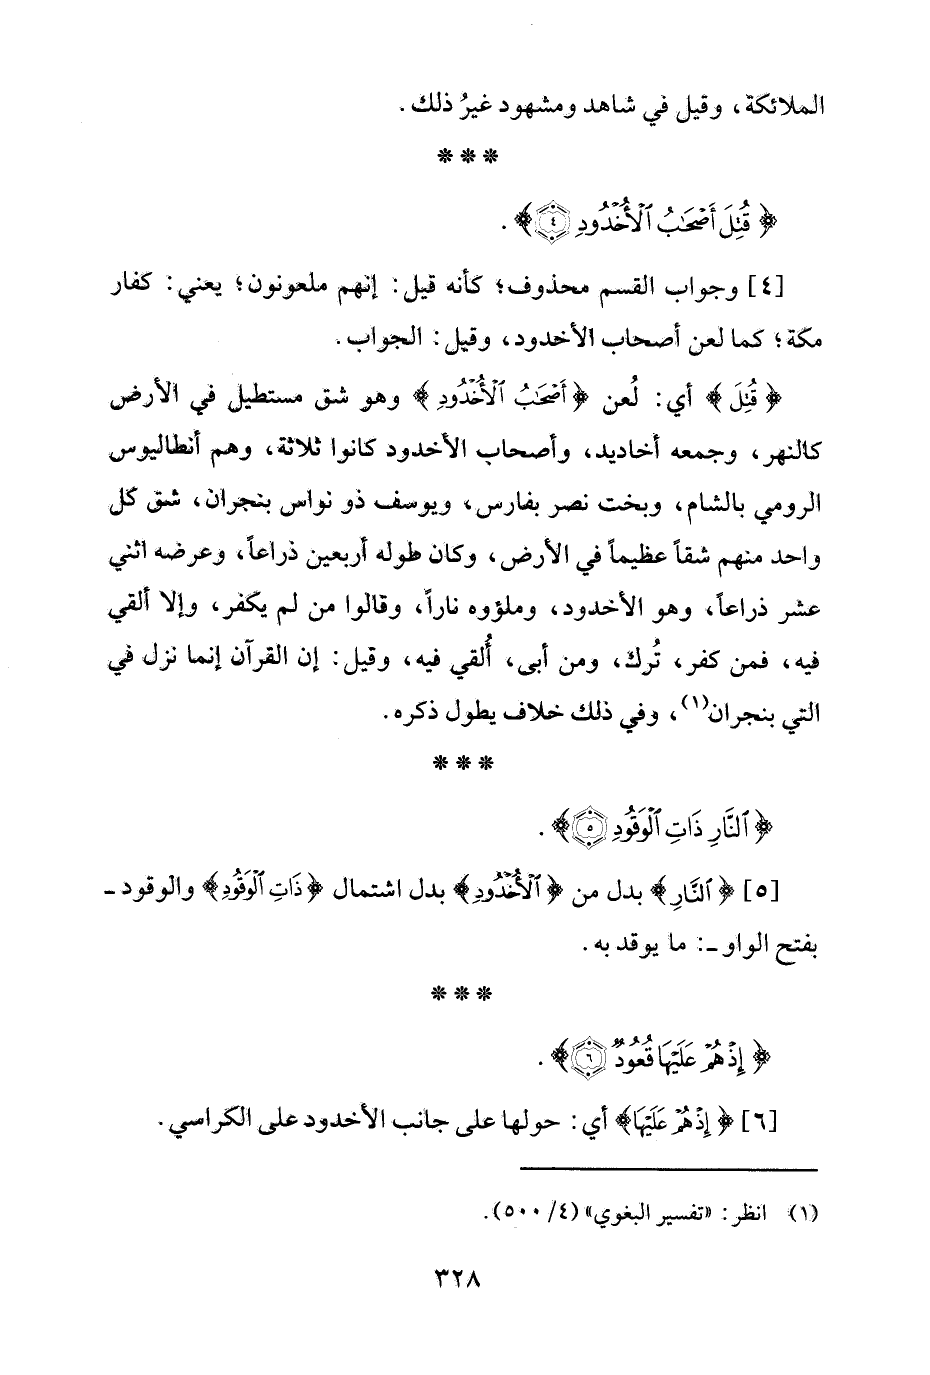 الملائكة، وقيل في شاهد ومشهود غيرُ ذلك.
* * *
﴿ قُتِلَ أَصْحَٰبُ ٱلْأُخْدُودِ ٤ ﴾.
[٤] وجواب القسم محذوف؛ كأنه قيل: إنهم ملعونون؛ يعني: كفار
مكة؛ كما لعن أصحاب الأخدود، وقيل: الجواب.
﴿ قُتِلَ ﴾ أي: لُعن ﴿ أَصْحَٰبُ ٱلْأُخْدُودِ ﴾ وهو شق مستطيل في الأرض
كالنهر، وجمعه أخاديد، وأصحاب الأخدود كانوا ثلاثة، وهم أنطاليوس
الرومي بالشام، وبخت نصر بفارس، ويوسف ذو نواس بنجران، شق كل
واحد منهم شقاً عظيماً في الأرض، وكان طوله أربعين ذراعاً، وعرضه اثني
عشر ذراعاً، وهو الأخدود، وملؤوه ناراً، وقالوا من لم يكفر، وإلا ألقي
فيه، فمن كفر، تُرك، ومن أبى، أُلقي فيه، وقيل: إن القرآن إنما نزل في
التي بنجران(١)، وفي ذلك خلاف يطول ذكره.
* * *
﴿ ٱلنَّارِ ذَاتِ ٱلْوَقُودِ ٥ ﴾.
[٥] ﴿ ٱلنَّارِ ﴾ بدل من ﴿ ٱلْأُخْدُودِ ﴾ بدل اشتمال ﴿ ذَاتِ ٱلْوَقُودِ ﴾ والوقود ـ
بفتح الواو ـ: ما يوقد به.
* * *
﴿ إِذْ هُمْ عَلَيْهَا قُعُودٌ ٦ ﴾.
[٦] ﴿ إِذْ هُمْ عَلَيْهَا ﴾ أي: حولها على جانب الأخدود على الكراسي.
(١) انظر: «تفسير البغوي» (٤/ ٥٠٠).
٣٢٨